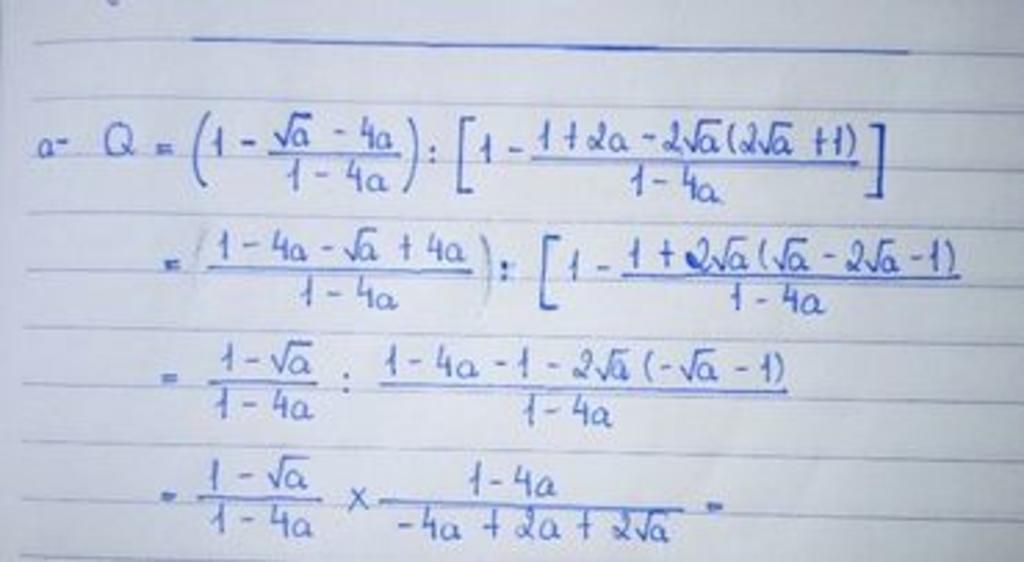 a- Q = (1 - (√a - 4a)/(1 - 4a)) : [1 - (1 + 2a - 2√a(2√a + 1))/(1 - 4a)]
= ((1 - 4a - √a + 4a)/(1 - 4a)) : [1 - (1 + 2√a(√a - 2√a - 1))/(1 - 4a)
= (1 - √a)/(1 - 4a) : (1 - 4a - 1 - 2√a(-√a - 1))/(1 - 4a)
= (1 - √a)/(1 - 4a) × (1 - 4a)/(-4a + 2a + 2√a) =